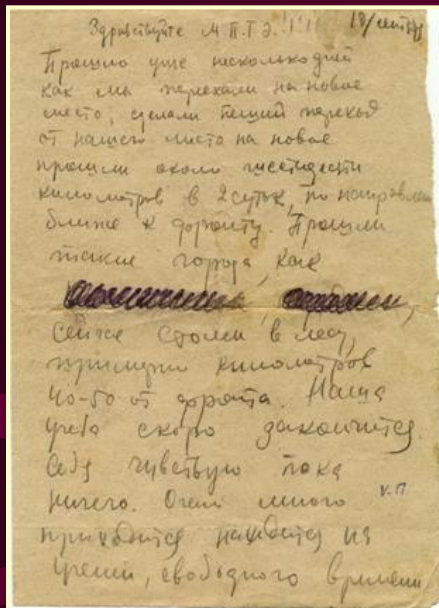 Здравствуйте М.П.Т.Э.!!!! 18/сентябр
Прошло уже несколько дней
как мы переехали на новое
место, сделали пеший переход
от нашего место на новое
прошли около шестидести
километров в 2 суток, по направлен
ближе к фронту. Прошли
такие города, как
Сейчас стоим в лесу,
примерно километров
40-50 от фронта. Наша
учеба скоро закончится.
Себя чувствую пока
ничего. Очен много
приходится находится на
свободного времени